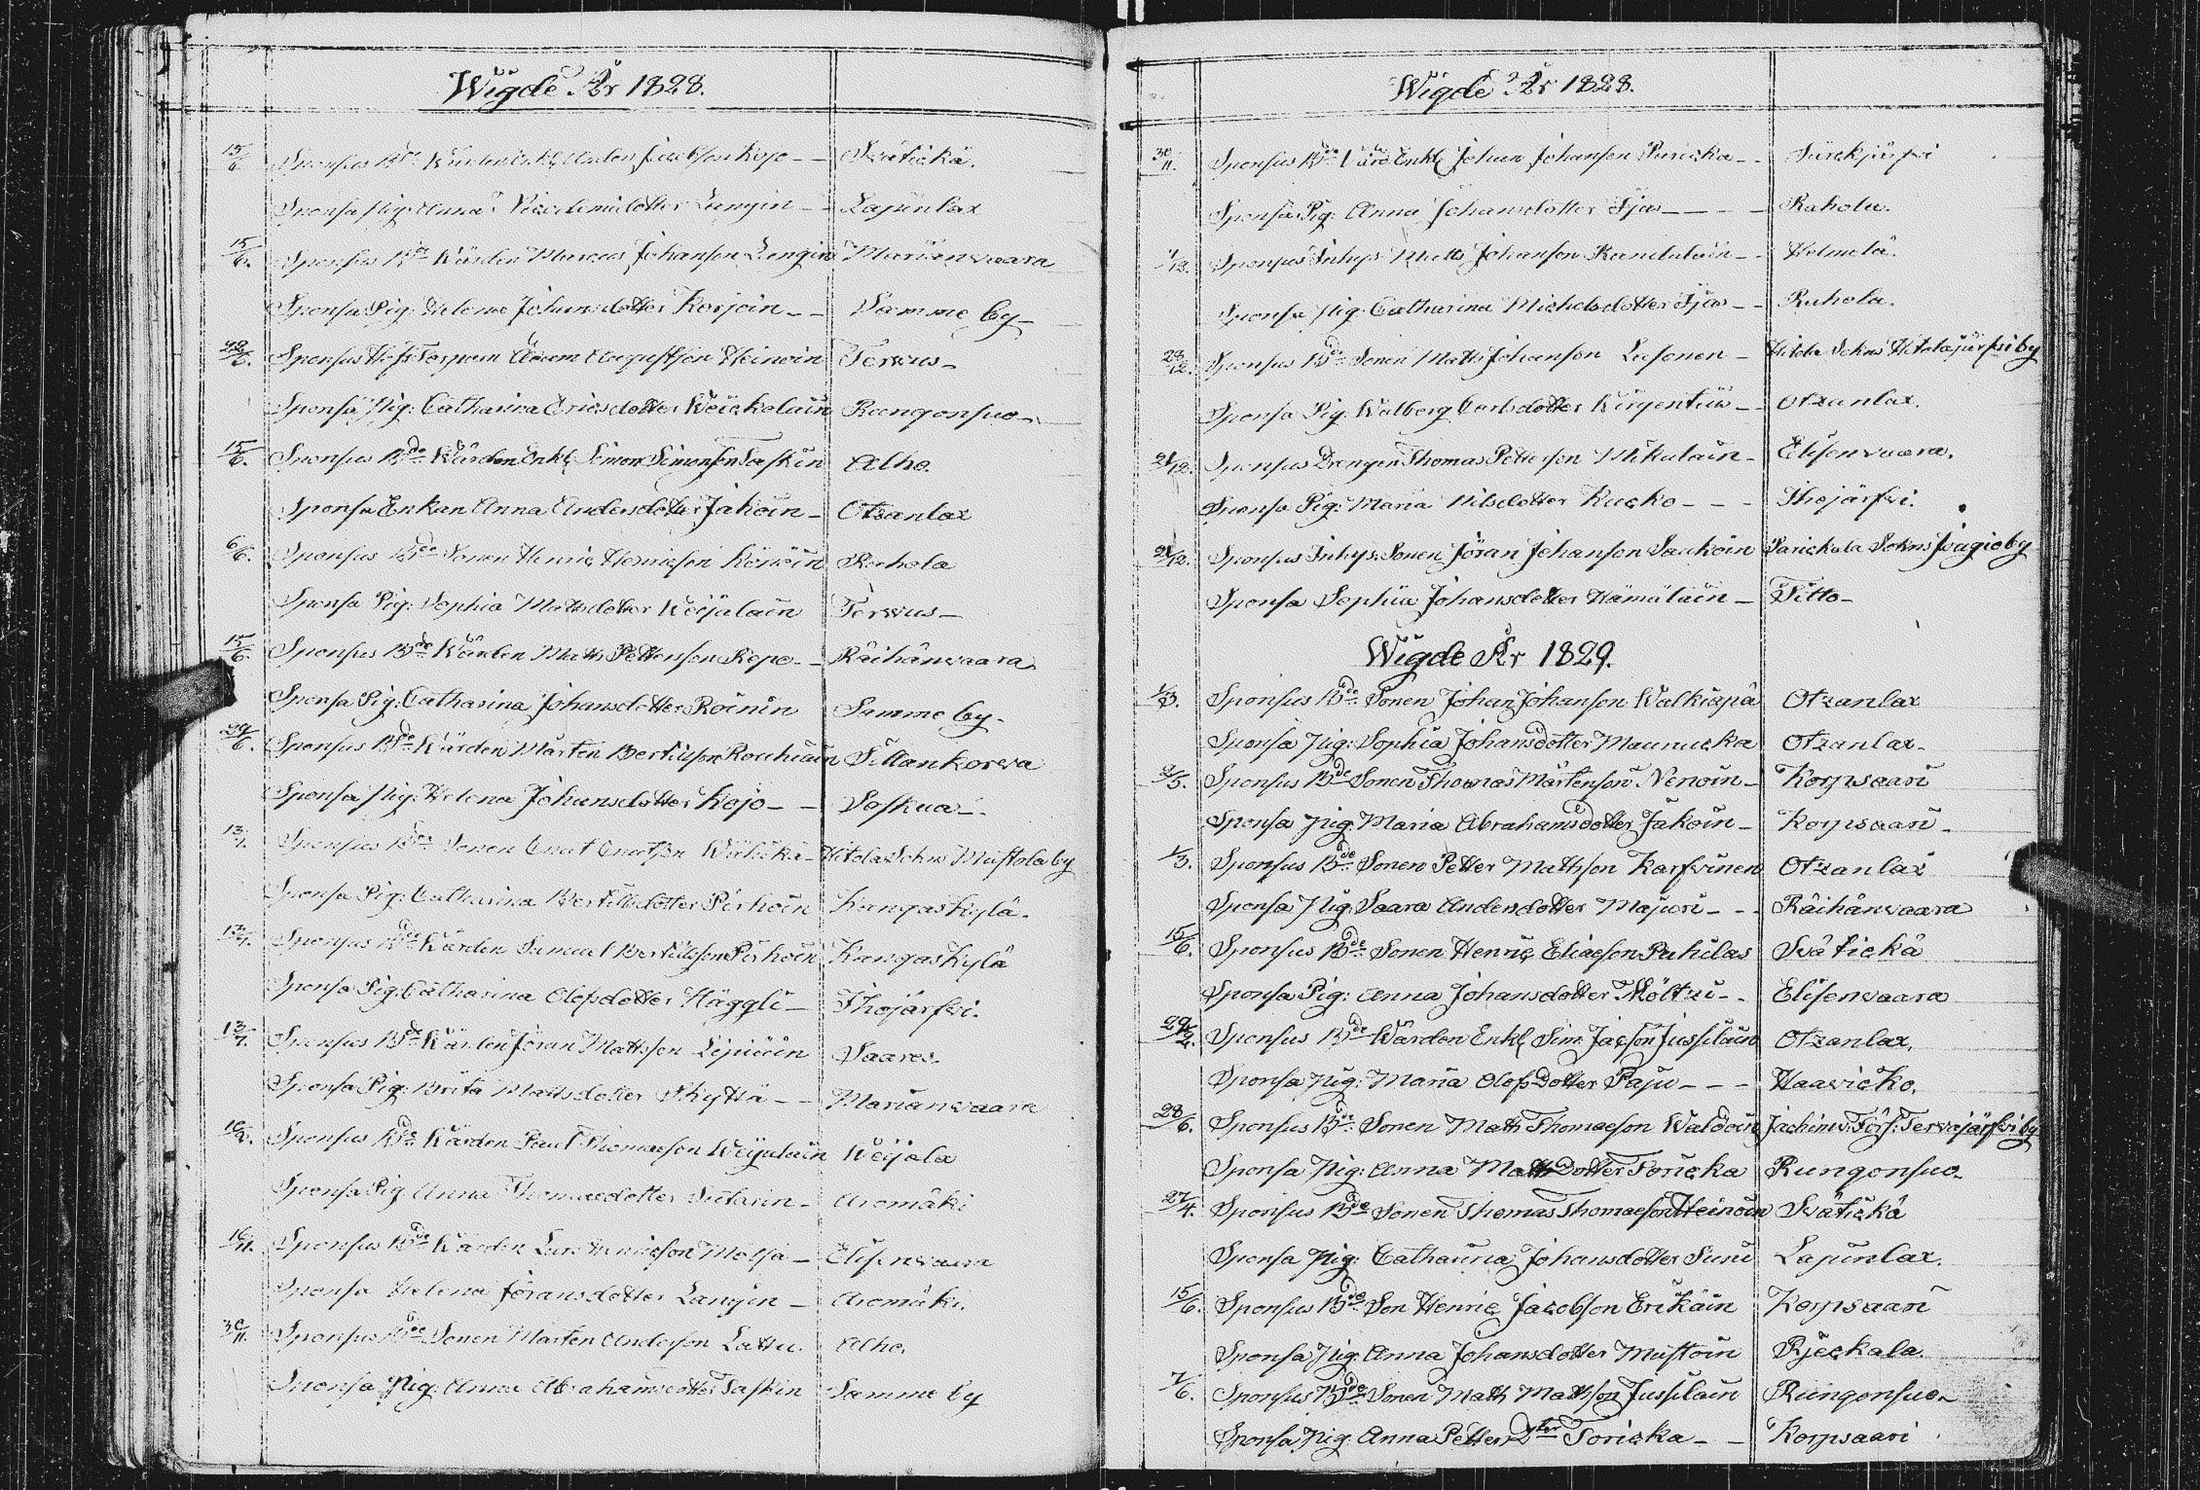 Wigde År 1828.
15/6. Sponsus Bde Wärden Enkl. Anders Jacobson Kojo - - Svätickä.
Sponsa Pig: Anna Nicodemidotter Langin - - Lapinlax
15/6. Sponsus Bde Wärden Marcus Johanson Langin Marianvaara
Sponsa Pig: Helena Johansdotter Korjoin - - Samme by -
22/6. Sponsus Hofs Torparn Adam Augustson Heinoin Terwus -
Sponsa Pig: Catharina Ericsdotter Weickolain Rungonsuo -
15/6. Sponsus Bde Wärden Enkl. Simon Simonson Taskin Alho.
Sponsa Enkan Anna Andersdotter Jakoin - Otsanlax
6/6. Sponsus Bde Sonen Henric Henricson Könöin Rahola
Sponsa Pig: Sophia Mattsdotter Weijalain Terwus -
15/6. Sponsus Bde Wärden Matts Pettersson Repo - - Räihänvaara
Sponsa Pig: Catharina Johansdotter Roinin Samme by -
24/6. Sponsus Bde Wärden Mårten Bertilson Rouhiain Sillankorva
Sponsa Pig: Helena Johansdotter Kojo - - Soskua -
13/7. Sponsus Bde Sonen Cnut Cnutson - Hitola Sokns Mustola by
Sponsa Pig: Catharina Bertilsdotter Pirhoin Kangaskylä -
13/7. Sponsus Bde Wärden Samuel Bertilsson Pirhoin Kangaskylä
Sponsa Pig: Catharina Olofsdotter Häggli - Ihojärfvi.
13/7. Sponsus Bde Wärden Jöran Mattsson Lipiäin Saares.
Sponsa Pig: Brita Mattsdotter Skyttä - - Marianvaara
10/8. Sponsus Bde Wärden Paul Thomaeson Weijalain Weijala
Sponsa Pig. Anna Thomaedotter Sutarin - Aromäki
16/11. Sponsus Bde Wärden Lars Molsa - Elisenvaara
Sponsa Helena Jöransdotter Langin - Aromäki.
30/11. Sponsus Bde Sonen Mårten Anderson Lattu. Alho.
Sponsa Pig: Anna Abrahamsdotter Taskin Samme by
Wigde År 1828.
30/11. Sponsus Bde Wärd Enkl. Johan Johanson Puricka - - Särckjärfvi
Sponsa Pig: Anna Johansdotter Ijas - - - - Rahola.
/12. Sponsus Inhys Matts Johanson Kandulain - - Helmelä.
Sponsa Pig: Catharina Michelsdotter Ijas - - Rahola.
28/12. Sponsus Bde Sonen Matts Johanson Lasonen - Hitola Sokns Hitolajärfvi by
Sponsa Pig: Walborg Carlsdotter - - Otsanlax.
21/12. Sponsus Drengen Thomas Petterson Mikulain - Elisenvaara.
Sponsa Pig: Maria Nilsdotter Kucko - - - Ihojärfvi.
21/12. Sponsus Inhys: Sonen Jöran Johanson Saukoin Parickala Sokns Jougio by
Sponsa Sophia Johansdotter Hämäläin - Ditto -
Wigde År 1829.
1/3. Sponsus Bde Sonen Johan Johanson Walkiapä Otsanlax
Sponsa Pig: Sophia Johansdotter Maunucka Otsanlax -
/5. Sponsus Bde Sonen Thomas Mårtenson Nenoin - Korpsaari
Sponsa Pig: Maria Abrahamsdotter Jakoin - Korpsaari -
1/3. Sponsus Bde Sonen Petter Mathson Karfvinen Otsanlax
Sponsa Pig: Saara Andersdotter Majuri - - - Räihänvaara
15/6. Sponsus Bde Sonen Henric Eliaeson Puhilas Svätickä
Sponsa Pig: Anna Johansdotter Möltzi - - Elisenvaara
29/2. Sponsus Bde Wärden Enkl. Sim: Jacson Jussilain Otsanlax.
Sponsa Pig: Maria Olofsdotter Paju - - - Haavicko.
28/6. Sponsus Bde Sonen Math Thomaeson Waldoin Jachimv: Förs: Tervajärfvi by
Sponsa Pig: Anna Mattsdotter Toricka Rungonsuo -
27/4. Sponsus Bde Sonen Thomas Thomaeson Heinoin Svätickä
Sponsa Pig: Catharina Johansdotter Suni Lapinlax.
15/6. Sponsus Bde Son Henric Jacobson Erikäin Korpsaari
Sponsa Pig: Anna Johansdotter Mustoin Rjeckala.
7/6. Sponsus Bde Sonen Math Mathson Jussilain Rungonsuo -
Sponsa Pig: Anna Petters Dter Toricka - - Korpsaari